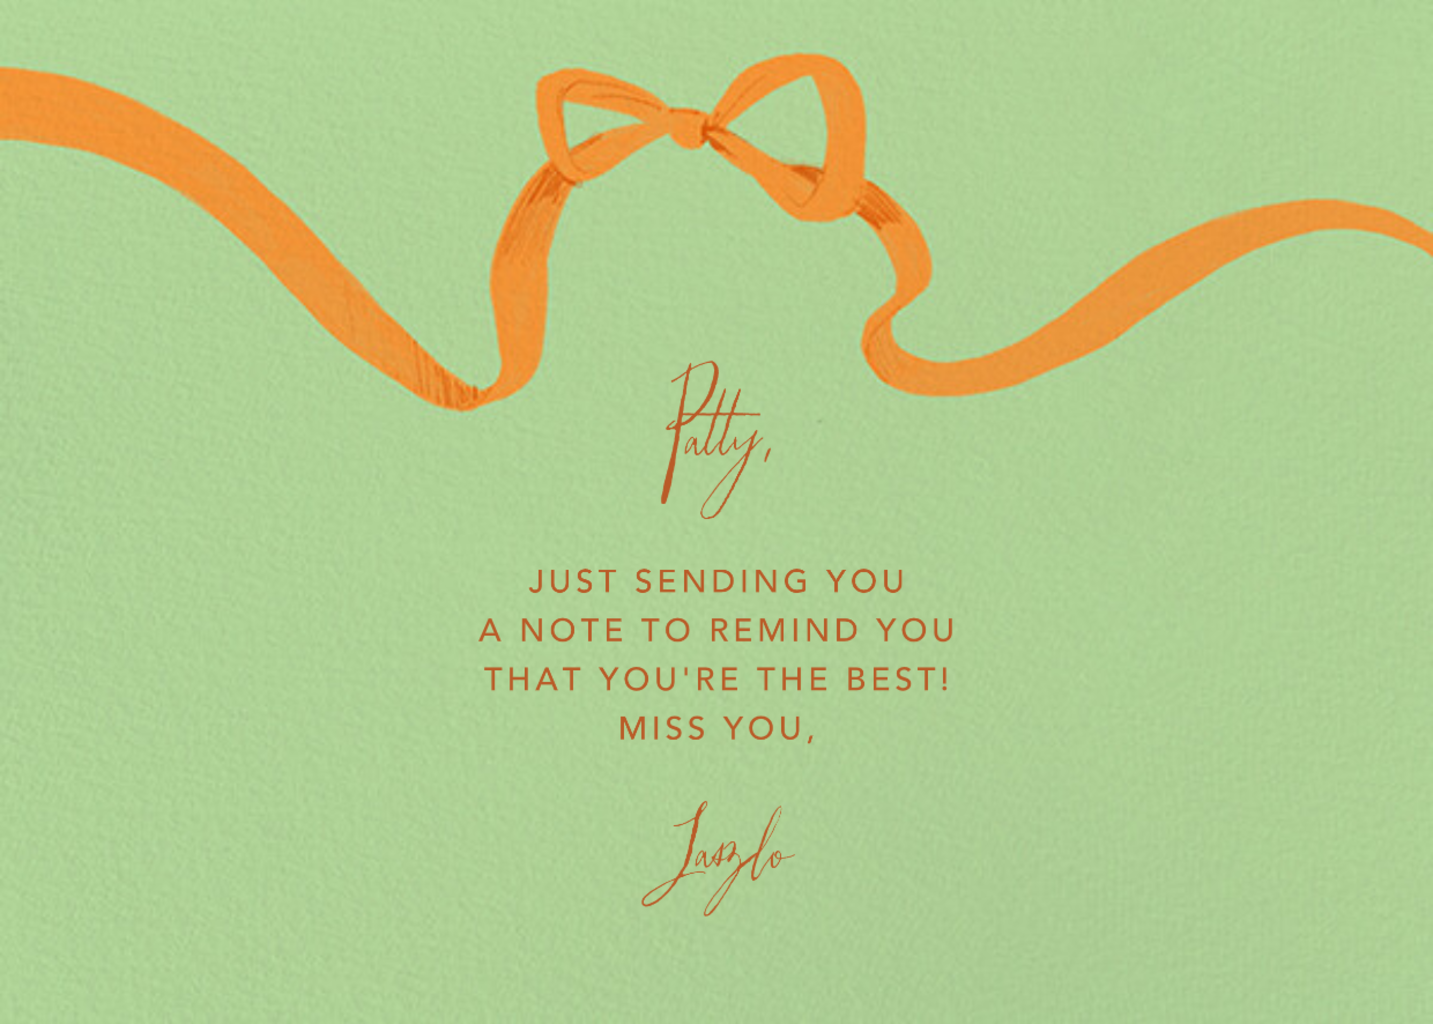 Patty,
JUST SENDING YOU
A NOTE TO REMIND YOU
THAT YOU'RE THE BEST!
MISS YOU,
Laszlo